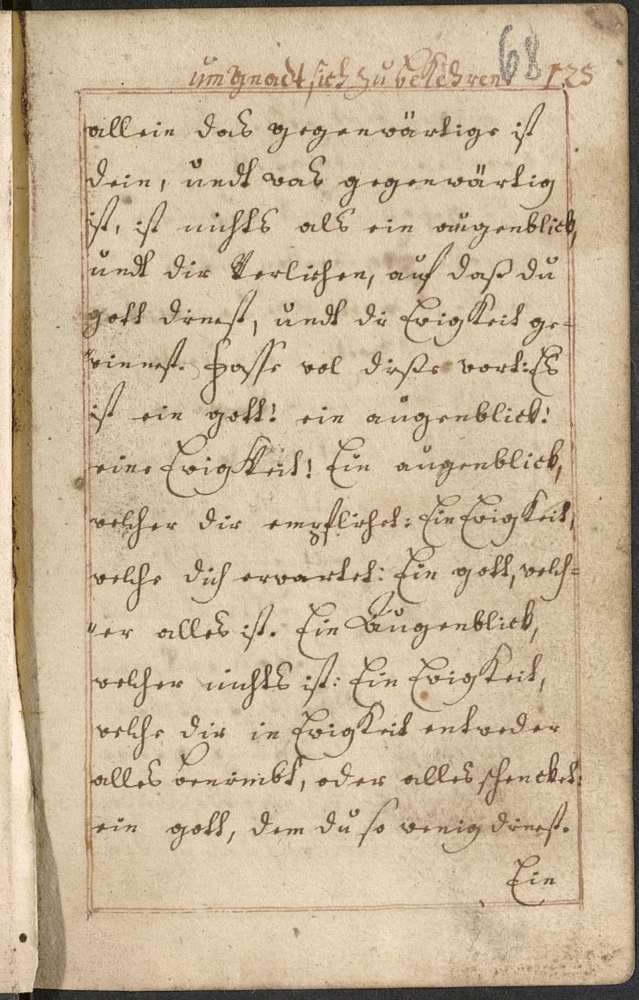 um gnadt sich zu bekehren 68 125
allein das gegenwärtige ist
dein, undt was gegenwärtig
ist, ist nichts als ein augenblick,
undt dir Verlichen, auf daß du
gott dinest, undt di Ewigkeit ge=
"winnest. Fasse wol diße wort: Es
ist ein gott! ein augenblick!
eine Ewigkeit! Ein augenblick,
welcher dir empflichet: Ein Ewigkeit,
welche dich erwartet: Ein gott, welch=
"er alles ist. Ein Augenblick,
welcher nichts ist: Ein Ewigkeit,
welche dir in Ewigkeit entweder
alles benimbt, oder alles schencket:
ein gott, dem du so wenig dinest.
Ein